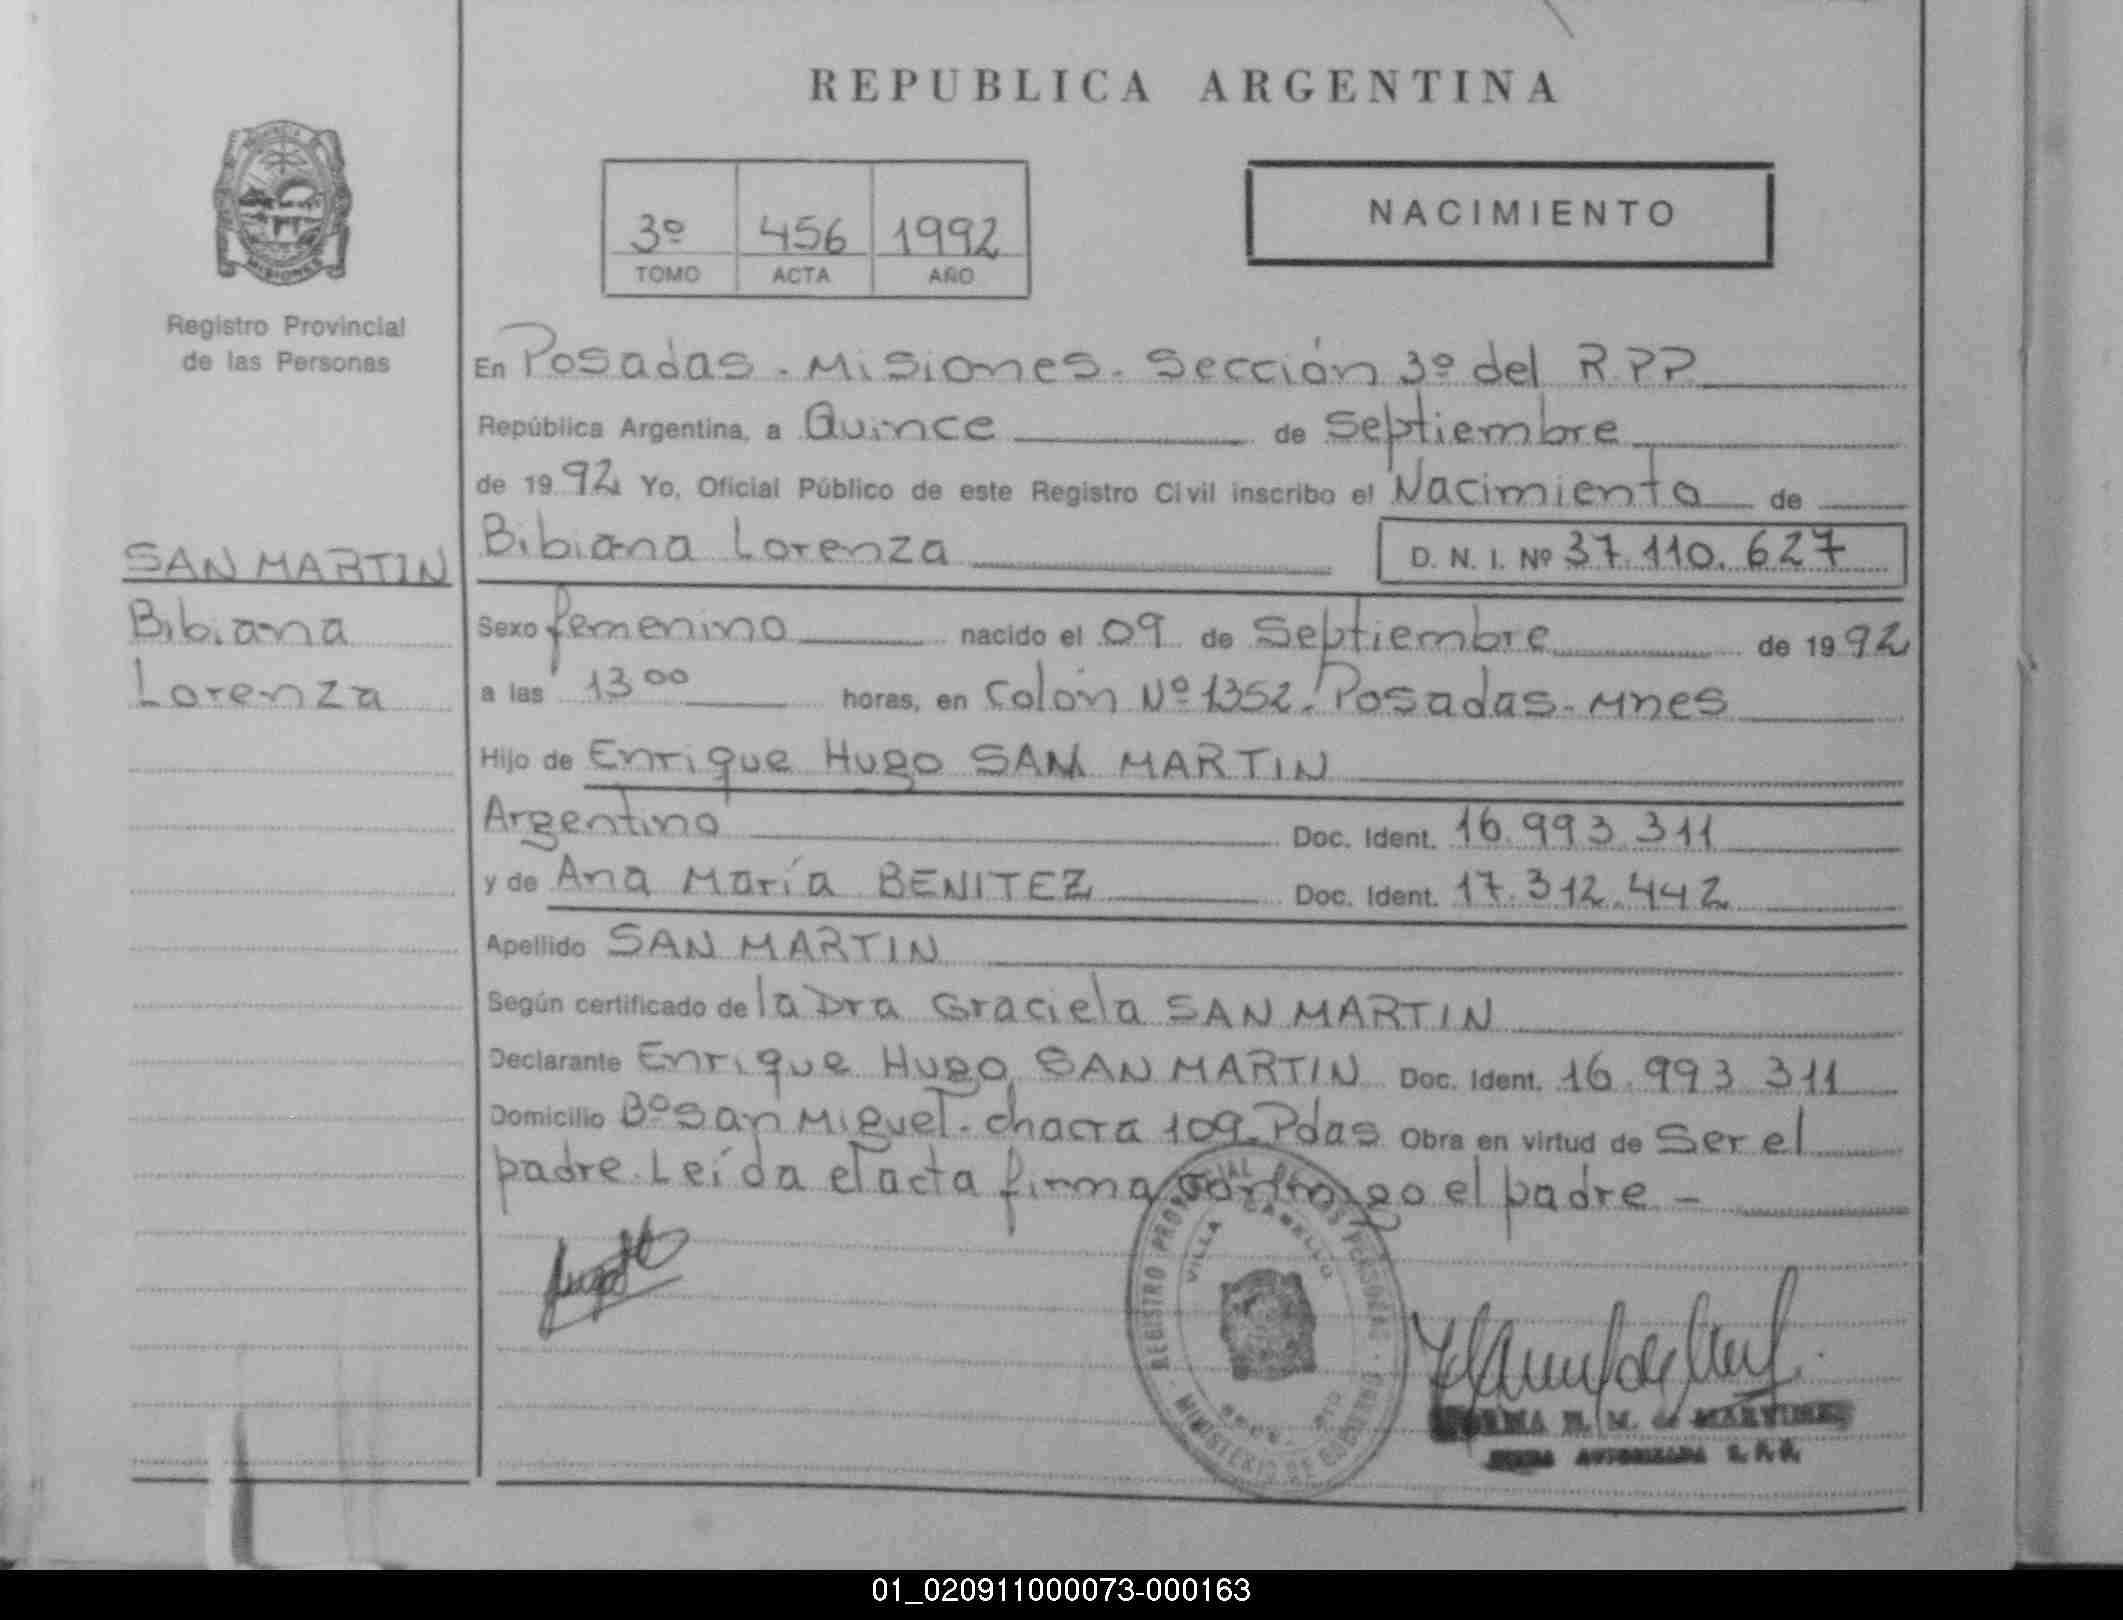 REPUBLICA ARGENTINA
PROVINCIA
MISIONES
Registro Provincial
de las Personas
3º 456 1992
TOMO ACTA AÑO
NACIMIENTO
En Posadas. Misiones. Sección 3º del R.P.P.
República Argentina, a Quince de Septiembre
de 1992 Yo, Oficial Público de este Registro Civil inscribo el Nacimiento de
Bibiana Lorenza D. N. I. Nº 37.110.627
SAN MARTIN
Bibiana
Lorenza
Sexo femenino nacido el 09 de Septiembre de 1992
a las 13 00 horas, en Colón Nº 1352. Posadas. Mnes
Hijo de Enrique Hugo SAN MARTIN
Argentino Doc. Ident. 16.993.311
y de Ana María BENITEZ Doc. Ident. 17.312.442
Apellido SAN MARTIN
Según certificado de la Dra Graciela SAN MARTIN
Declarante Enrique Hugo SAN MARTIN Doc. Ident. 16.993.311
Domicilio Bº San Miguel. chacra 109. Pdas Obra en virtud de Ser el
padre. Leída el acta firma conmigo el padre -
REGISTRO PROVINCIAL DE LAS PERSONAS
VILLA CABELLO
MINISTERIO DE GOBIERNO
M. de MARTINEZ
AUTORIZADA
01_020911000073-000163